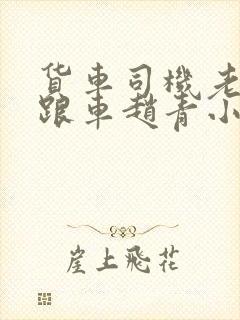 货车司機老
跟車趙青小
崖上飛花